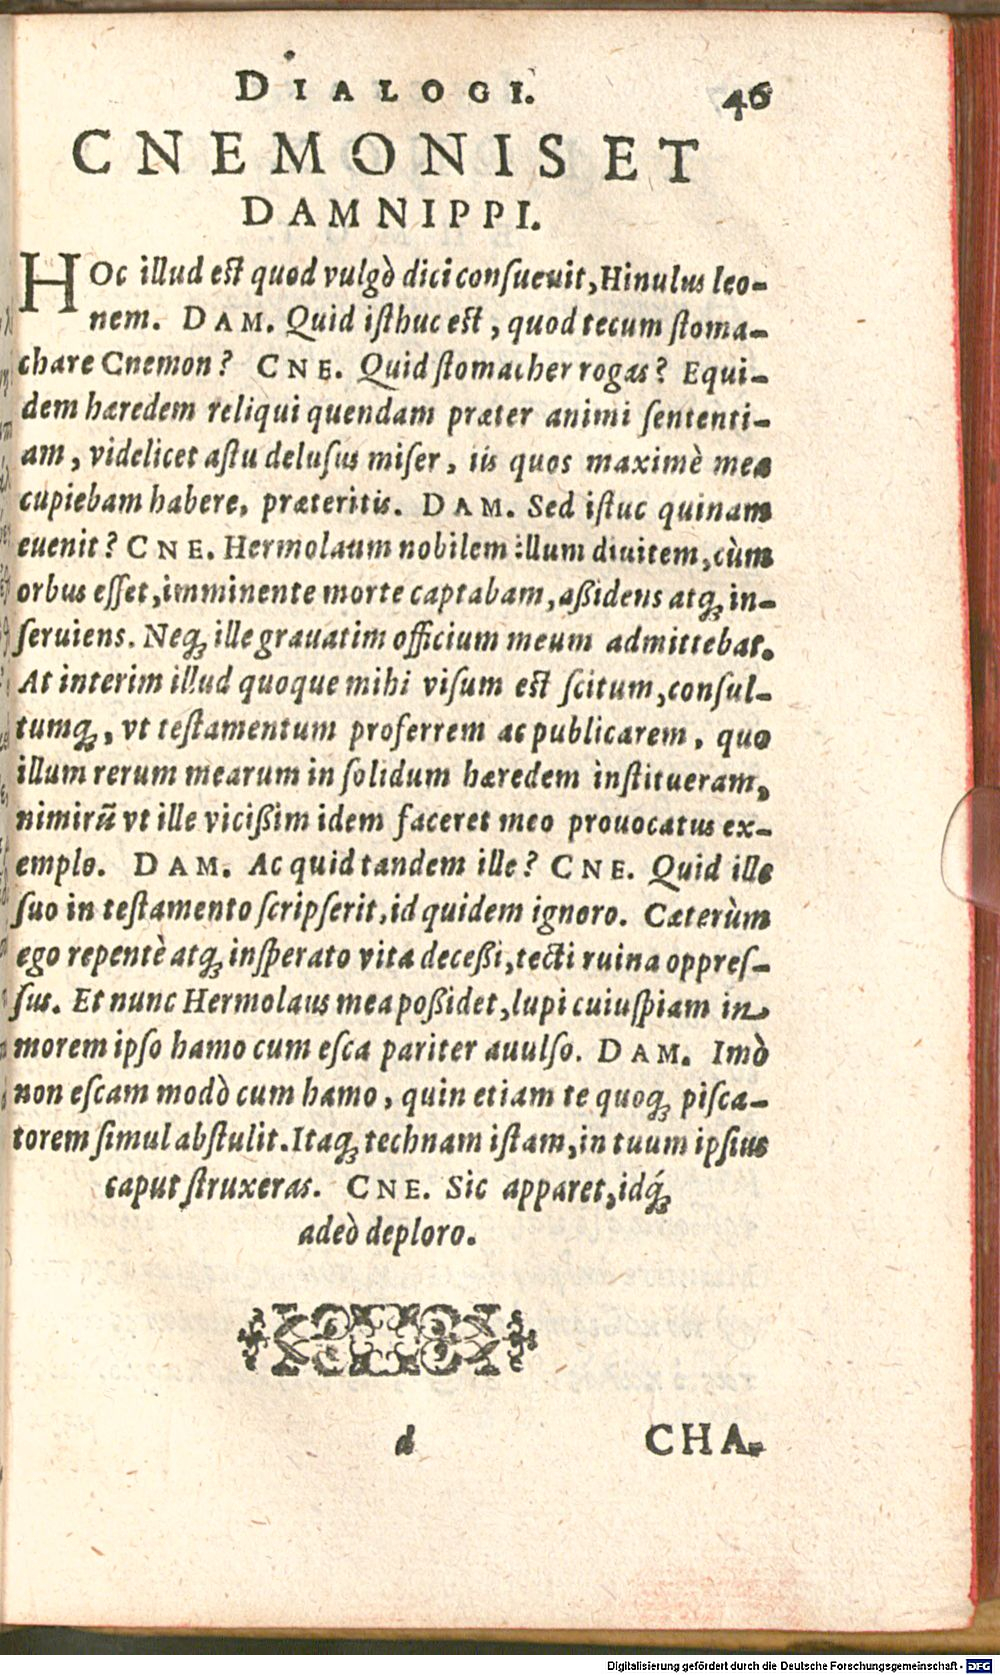 DIALOGI. 46
CNEMONIS ET
DAMNIPPI.
HOc illud est quod vulgò dici consueuit, Hinulus leo-
nem. DAM. Quid isthuc est, quod tecum stoma-
chare Cnemon? CNE. Quid stomacher rogas? Equi-
dem hæredem reliqui quendam præter animi sententi-
am, videlicet astu delusus miser, iis quos maximè mea
cupiebam habere, præteritis. DAM. Sed istuc quinam
euenit? CNE. Hermolaum nobilem illum diuitem, cùm
orbus esset, imminente morte captabam, aßidens atq; in-
seruiens. Neq; ille grauatim officium meum admittebat.
At interim illud quoque mihi visum est scitum, consul-
tumq;, vt testamentum proferrem ac publicarem, quo
illum rerum mearum in solidum hæredem institueram,
nimirũ vt ille vicißim idem faceret meo prouocatus ex-
emplo. DAM. Ac quid tandem ille? CNE. Quid ille
suo in testamento scripserit, id quidem ignoro. Cæterùm
ego repentè atq; insperato vita deceßi, tecti ruina oppres-
sus. Et nunc Hermolaus mea poßidet, lupi cuiuspiam in
morem ipso hamo cum esca pariter auulso. DAM. Imò
non escam modò cum hamo, quin etiam te quoq; pisca-
torem simul abstulit. Itaq; technam istam, in tuum ipsius
caput struxeras. CNE. Sic apparet, idq́;
adeò deploro.
d CHA-
Digitalisierung gefördert durch die Deutsche Forschungsgemeinschaft - DFG